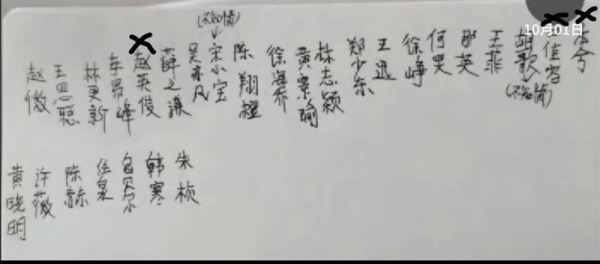 10月01日
赵薇
王思聪
林更新
李易峰
赵英俊
薛之谦
吴亦凡
(不知情)
宋小宝
陈翔
徐海乔
黄景瑜
林志颖
郑少东
王迅
徐峥
何炅
那英
王菲
胡歌
(不知情)
黄晓明
许薇
陈赫
任泉
包贝尔
韩寒
朱桢